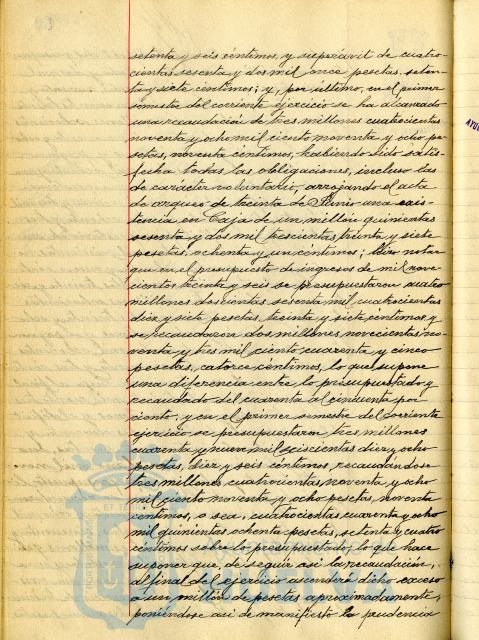 setenta y seis céntimos, y superávit de cuatro-
cientas sesenta y dos mil once pesetas, seten-
ta y siete céntimos; y, por último, en el primer
semestre del corriente ejercicio se ha alcanzado
una recaudación de tres millones cuatrocientas
noventa y ocho mil ciento noventa y ocho pe-
setas, noventa céntimos, habiendo sido satis-
fecha todas las obligaciones, incluso las
de carácter voluntario, arrojando el acta
de arqueo de treinta de Junio una exis-
tencia en Caja de un millón quinientas
sesenta y dos mil trescientas treinta y siete
pesetas, ochenta y un céntimos; hizo notar
que en el presupuesto de ingresos de mil nove-
cientos treinta y seis se presupuestaron cuatro
millones doscientas sesenta mil cuatrocientas
diez y siete pesetas, treinta y siete céntimos, y
se recaudaron dos millones novecientas no-
venta y tres mil ciento cuarenta y cinco
pesetas, catorce céntimos, lo que supone
una diferencia entre lo presupuestado y
recaudado del cuarenta al cincuenta por
ciento; y en el primer semestre del corriente
ejercicio se presupuestaron tres millones
cuarenta y nueve mil seiscientas diez y ocho
pesetas, diez y seis céntimos, recaudándose
tres millones cuatrocientas noventa y ocho
mil ciento noventa y ocho pesetas, noventa
céntimos, o sea, cuatrocientas cuarenta y ocho
mil quinientas ochenta pesetas, setenta y cuatro
céntimos sobre lo presupuestado, lo que hace
suponer que, de seguir así la recaudación,
al final del ejercicio ascenderá dicho exceso
a un millón de pesetas aproximadamente,
poniéndose así de manifiesto la prudencia
AYU